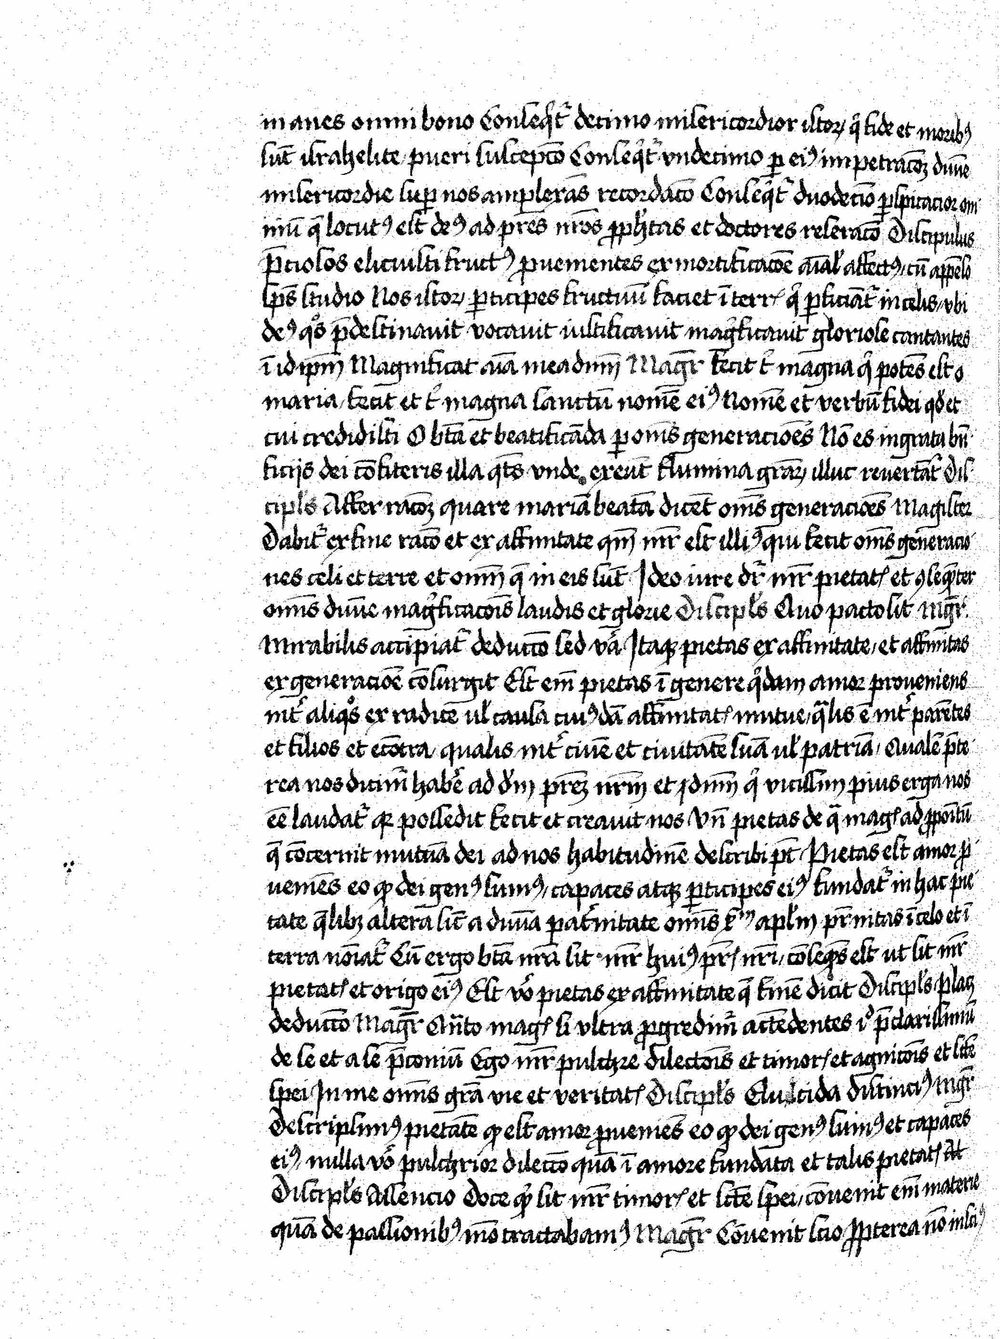 manes omni bono Conseqt̄ decimo misericordior istor, q̄ fide et moribꝰ
sūt israhelite, pueri suscepcō Conseqt̄ vndecimo p eiꝰ impetracōȝ diuīe
misericordie sup nos amplexās recordacō Conseqt̄ duodecīo pspicacior om
niū q̄ locutꝰ est deꝰ ad pr̄es nr̄os ꝓphetas et doctores reseracō Discipulus
P̄ciosos elicuisti fructꝰ prouenientes ex mortificacōe
sps studio Nos istor, pticipes fructuū faciet ī terr q̄ pficiat̄ in celis, vbi
deꝰ qͦs p̄destinauit vocauit iustificauit mag̓ficauit gloriose cantantes
ī idip̄m Magnificat aīa mea dn̄m Magr̄ Fecit t̄ magna q̄ potēs est o
maria, fecit et t̄ magna sanctū nomē eiꝰ Nomē et verbū fidei qd̓ et
cui credidisti O bt̄a et beatificāda p om̄s generacioēs Nō es ingrata bn̄
ficijs dei cōfiteris illa qt̄s vnde exeūt flumina grar, illuc reuertāt̄ Dis
cipl̓s Affer racōȝ quare mariā beatā dicēt om̄s generacioēs Magister
Dabit̄ ex fine racō et ex affinitate qm̄ mr̄ est illiꝰ qui fecit om̄s generacio
nes celi et terre et om̄m q̄ in eis sūt Ideo iure dr̄ mr̄ pietat et ꝯseqnter
om̄s diuīe mag̓ficacōis laudis et glorie Discipl̓s Quo pacto sit Mgr̄
Mirabilis accipiat̄ deducco sed vā Itaqꝫ pietas ex affinitate, et affinitas
ex generacioē cōsurgit Est em̄ pietas ī genere q̓dam amor proueniens
int̄ aliqͦs ex radice ul̓ causa cuiꝰdā affinitat mutue, q̄lis ē int̄ parētes
et filios et ecōtra, qualis int̄ ciuē et ciuitatē suā ul̓ patriā, Qualē p̄te
rea nos dicim̄ habē ad dm̄ prēȝ nr̄m et qd̓ vicissim pius erga nos
eē laudat̄ qꝛ possedit fecit et creauit nos Vn̄ pietas de q̄ mag ad ꝓpōitū
q̄ cōcernit mutuā dei ad nos habitudinē describi pt̄, Pietas est amor ꝓ
ueniēs eo qꝫ dei genꝰ sumꝰ, capaces atqꝫ pticipes eiꝰ fundat̄ in hac pie
tate q̄libȝ altera sic̄ a diuina pat̄nitate om̄is apl̓m pr̄nitas ī celo et ī
terra nōiat̄ Cū ergo bt̄a mr̄a sit mr̄ huiꝰ pr̄ nr̄i, cōseqns est ut sit mr̄
pietat et origo eiꝰ Est vͦ pietas ex affinitate q̄ finē dicit Discipl̓s, placȝ
deducco Magr̄ Qn̄to mag si vltra ꝓgredim̄ accedentes p̄clarissimū
de se et a se p̄coniū Ego mr̄ pulchre dilectōis et timor et agnitōis et scte
spei, In me om̄s grā vie et veritat Discipl̓s Elucida distinciꝰ Mgr̄
Descripsimꝰ pietatē qꝫ est amor ꝓueniēs eo qꝫ dei genꝰ sumꝰ et capaces
eiꝰ, nulla vͦ pulchrior dileccō quā ī amore fundata et talis pietat At
Discipl̓s Assencio Doce qͦ sit mr̄ timor et scte spei, cōuenit em̄ materie
quā de passionibꝰ mō tractabamꝰ Magr̄ Cōuenit scio ꝓpterea nō insci